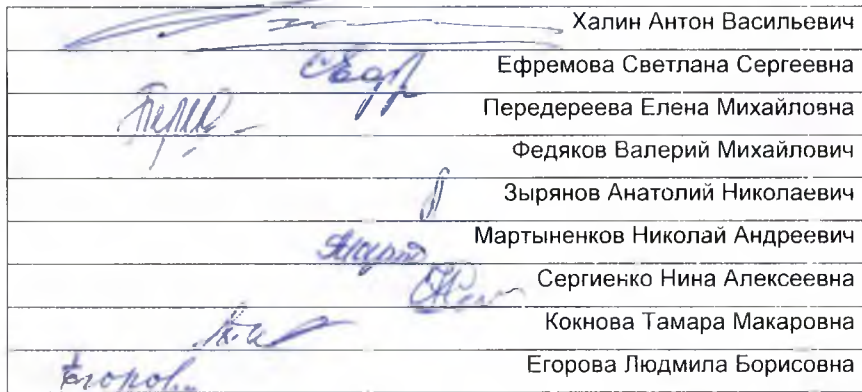 Халин Антон Васильевич
Ефремова Светлана Сергеевна
Передереева Елена Михайловна
Федяков Валерий Михайлович
Зырянов Анатолий Николаевич
Мартыненков Николай Андреевич
Сергиенко Нина Алексеевна
Кокнова Тамара Макаровна
Егорова Людмила Борисовна